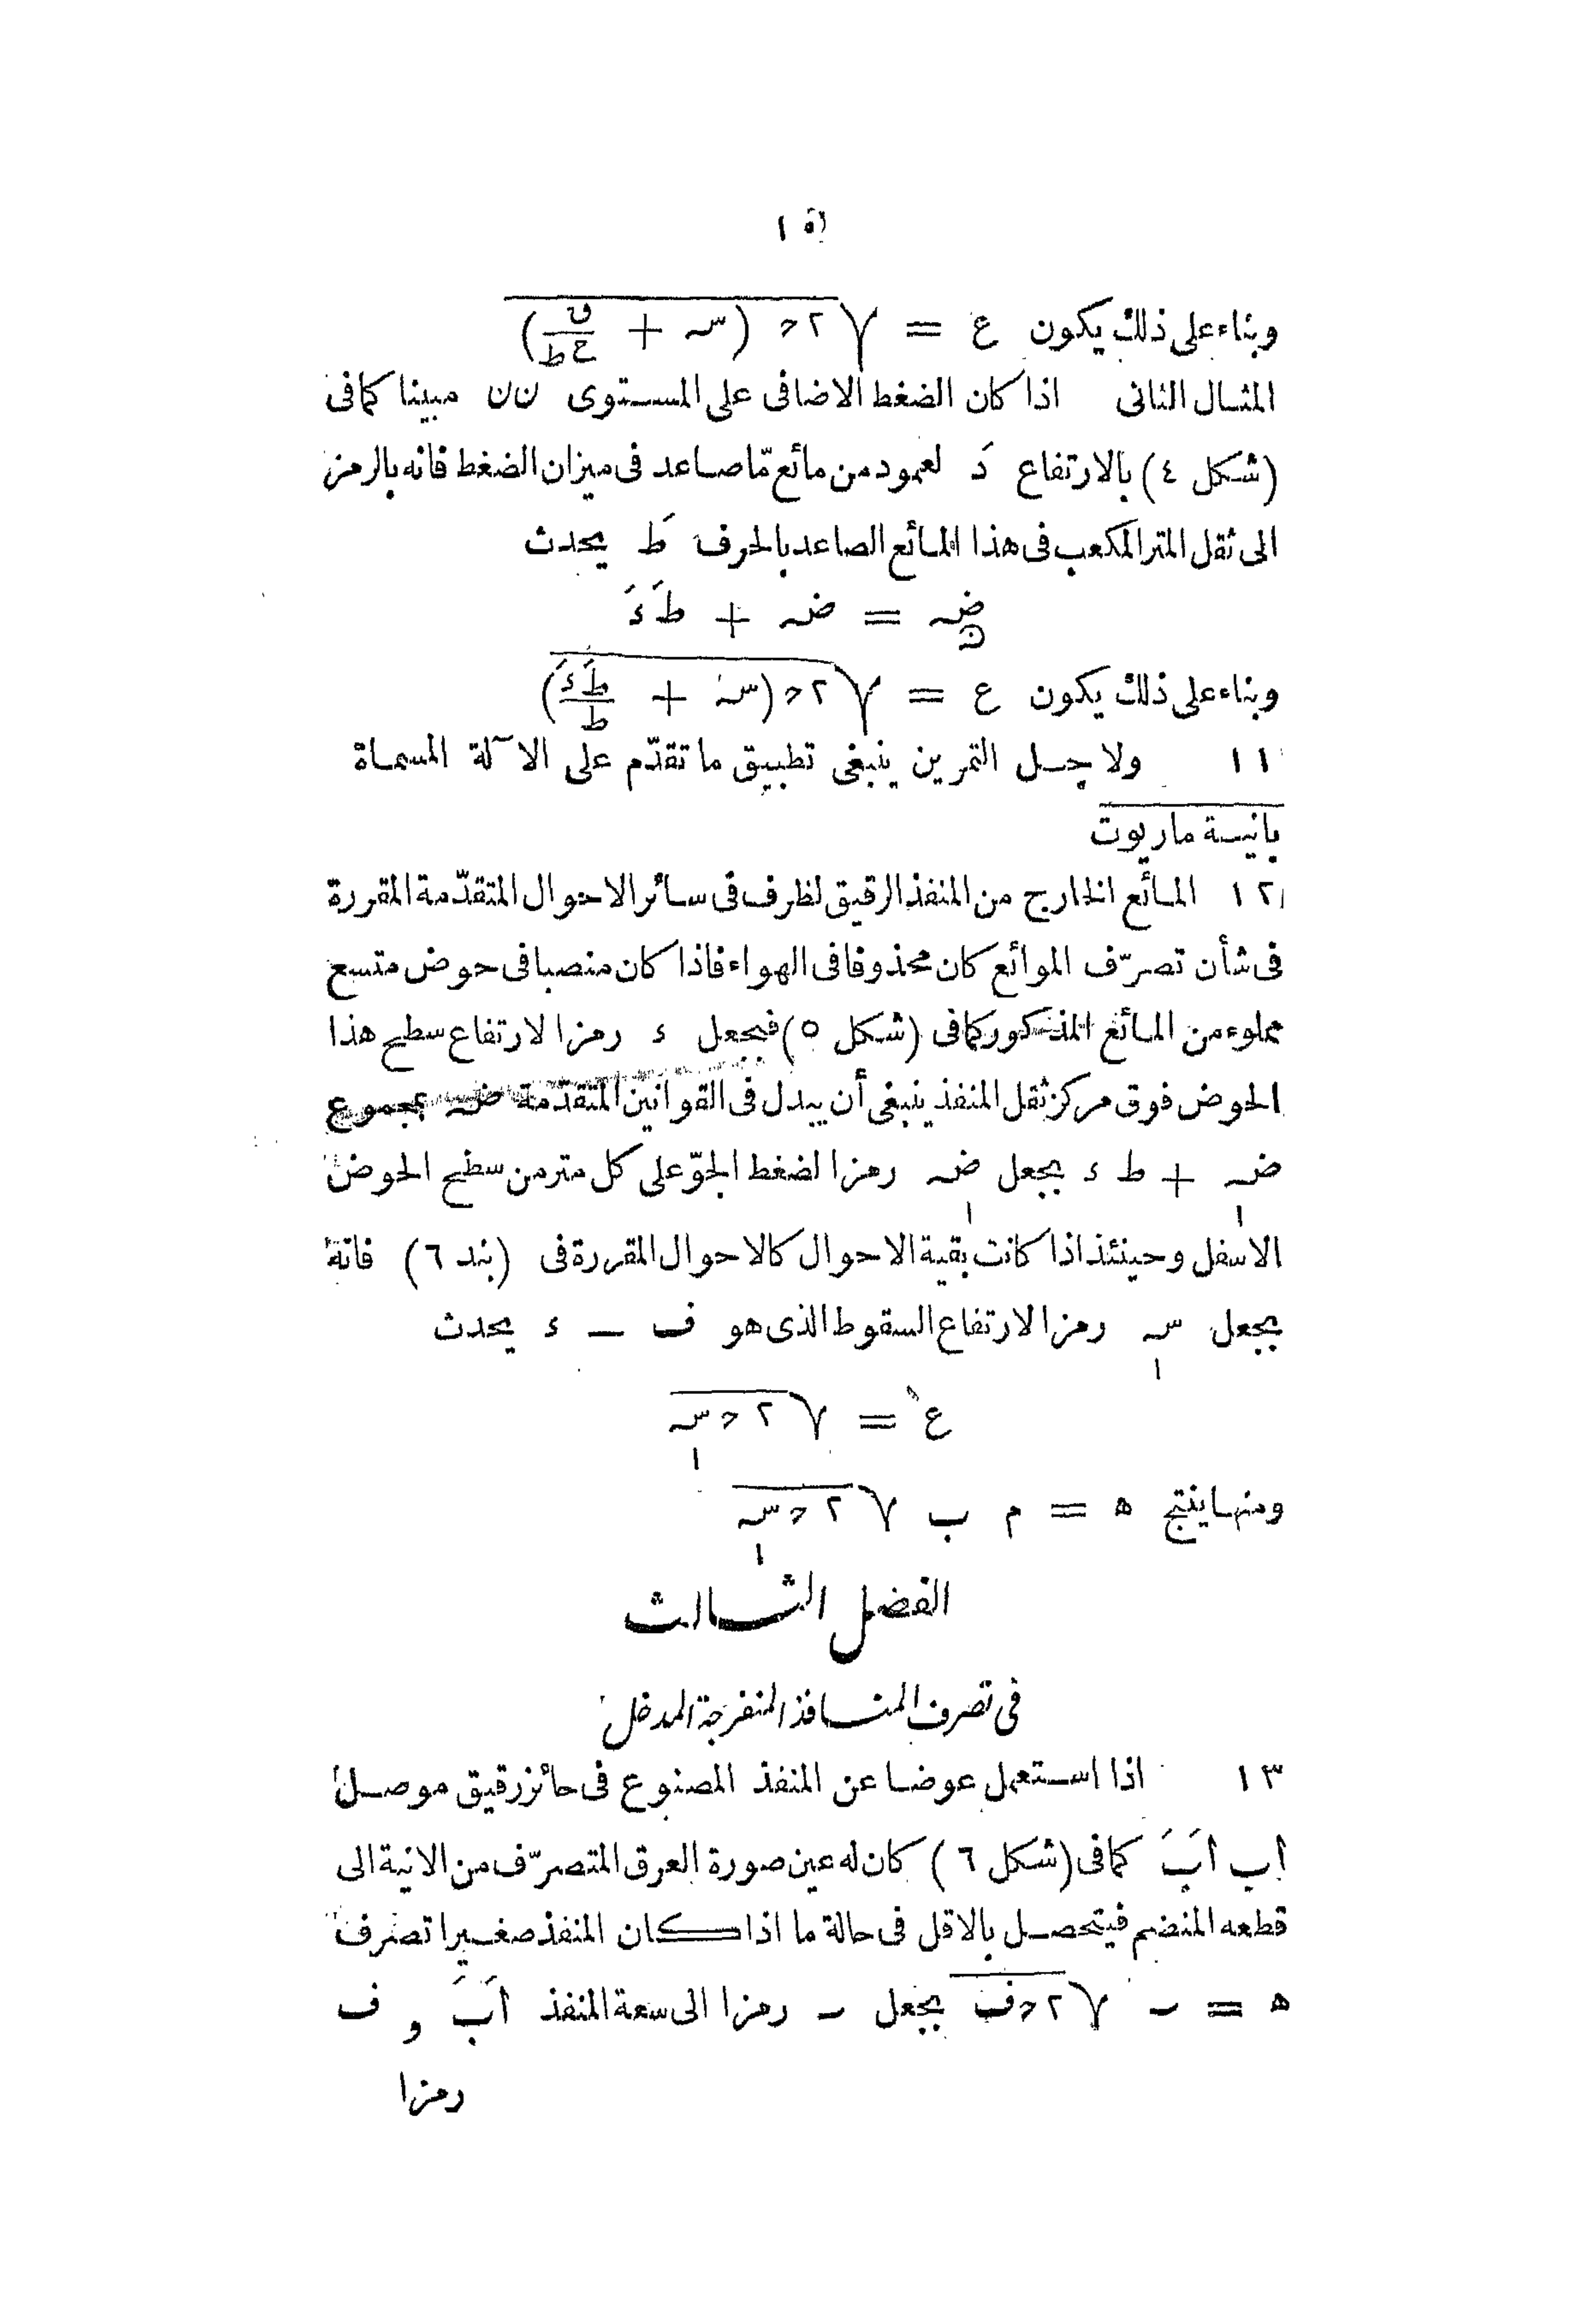 ١٥
وبناء على ذلك يكون ع = √٢ح (سـ + ق/ح ط)
المثال الثانى اذا كان الضغط الاضافى على المستوى ن ن مبينا كما فى
(شكل ٤) بالارتفاع دَ لعمود من مائع مّا صاعد فى ميزان الضغط فانه بالرمز
الى ثقل المتر المكعب فى هذا المائع الصاعد بالحرف طَ يحدث
ضـن = ضـ + طَ ءَ
وبناء على ذلك يكون ع = √٢ح (سـ + طَ ءَ/ط)
١١ ولاجل التمرين ينبغى تطبيق ما تقدّم على الآلة المسماة
بانية ماريوت
١٢ المائع الخارج من المنفذ الرقيق لظرف فى سائر الاحوال المتقدّمة المقررة
فى شأن تصرّف الموائع كان محذوفا فى الهواء فاذا كان منصبا فى حوض متسع
مملوء من المائع المذكور كما فى (شكل ٥) فيجعل ء رمزا لارتفاع سطح هذا
الحوض فوق مركز ثقل المنفذ ينبغى أن يبدل فى القوانين المتقدّمة ضـ بمجموع
ضـ١ + ط ء بجعل ضـ١ رمزا لضغط الجوّ على كل متر من سطح الحوض
الاسفل وحينئذ اذا كانت بقية الاحوال كالاحوال المقررة فى (بند ٦) فانه
بجعل سـ١ رمزا لارتفاع السقوط الذى هو ف — ء يحدث
ع = √٢ح سـ١
ومنها ينتج ه = م ب √٢ح سـ١
الفصل الثالث
فى تصرف المنافذ المنفرجة المدخل
١٣ اذا استعمل عوضا عن المنفذ المصنوع فى حائز رقيق موصل
اب اَبَ كما فى (شكل ٦) كان له عين صورة العرق المتصرّف من الانية الى
قطعه المنضم فيتحصل بالاقل فى حالة ما اذا كان المنفذ صغيرا تصرف
ه = ر √٢ح ف بجعل ر رمزا الى سعة المنفذ اَبَ و ف
رمزا